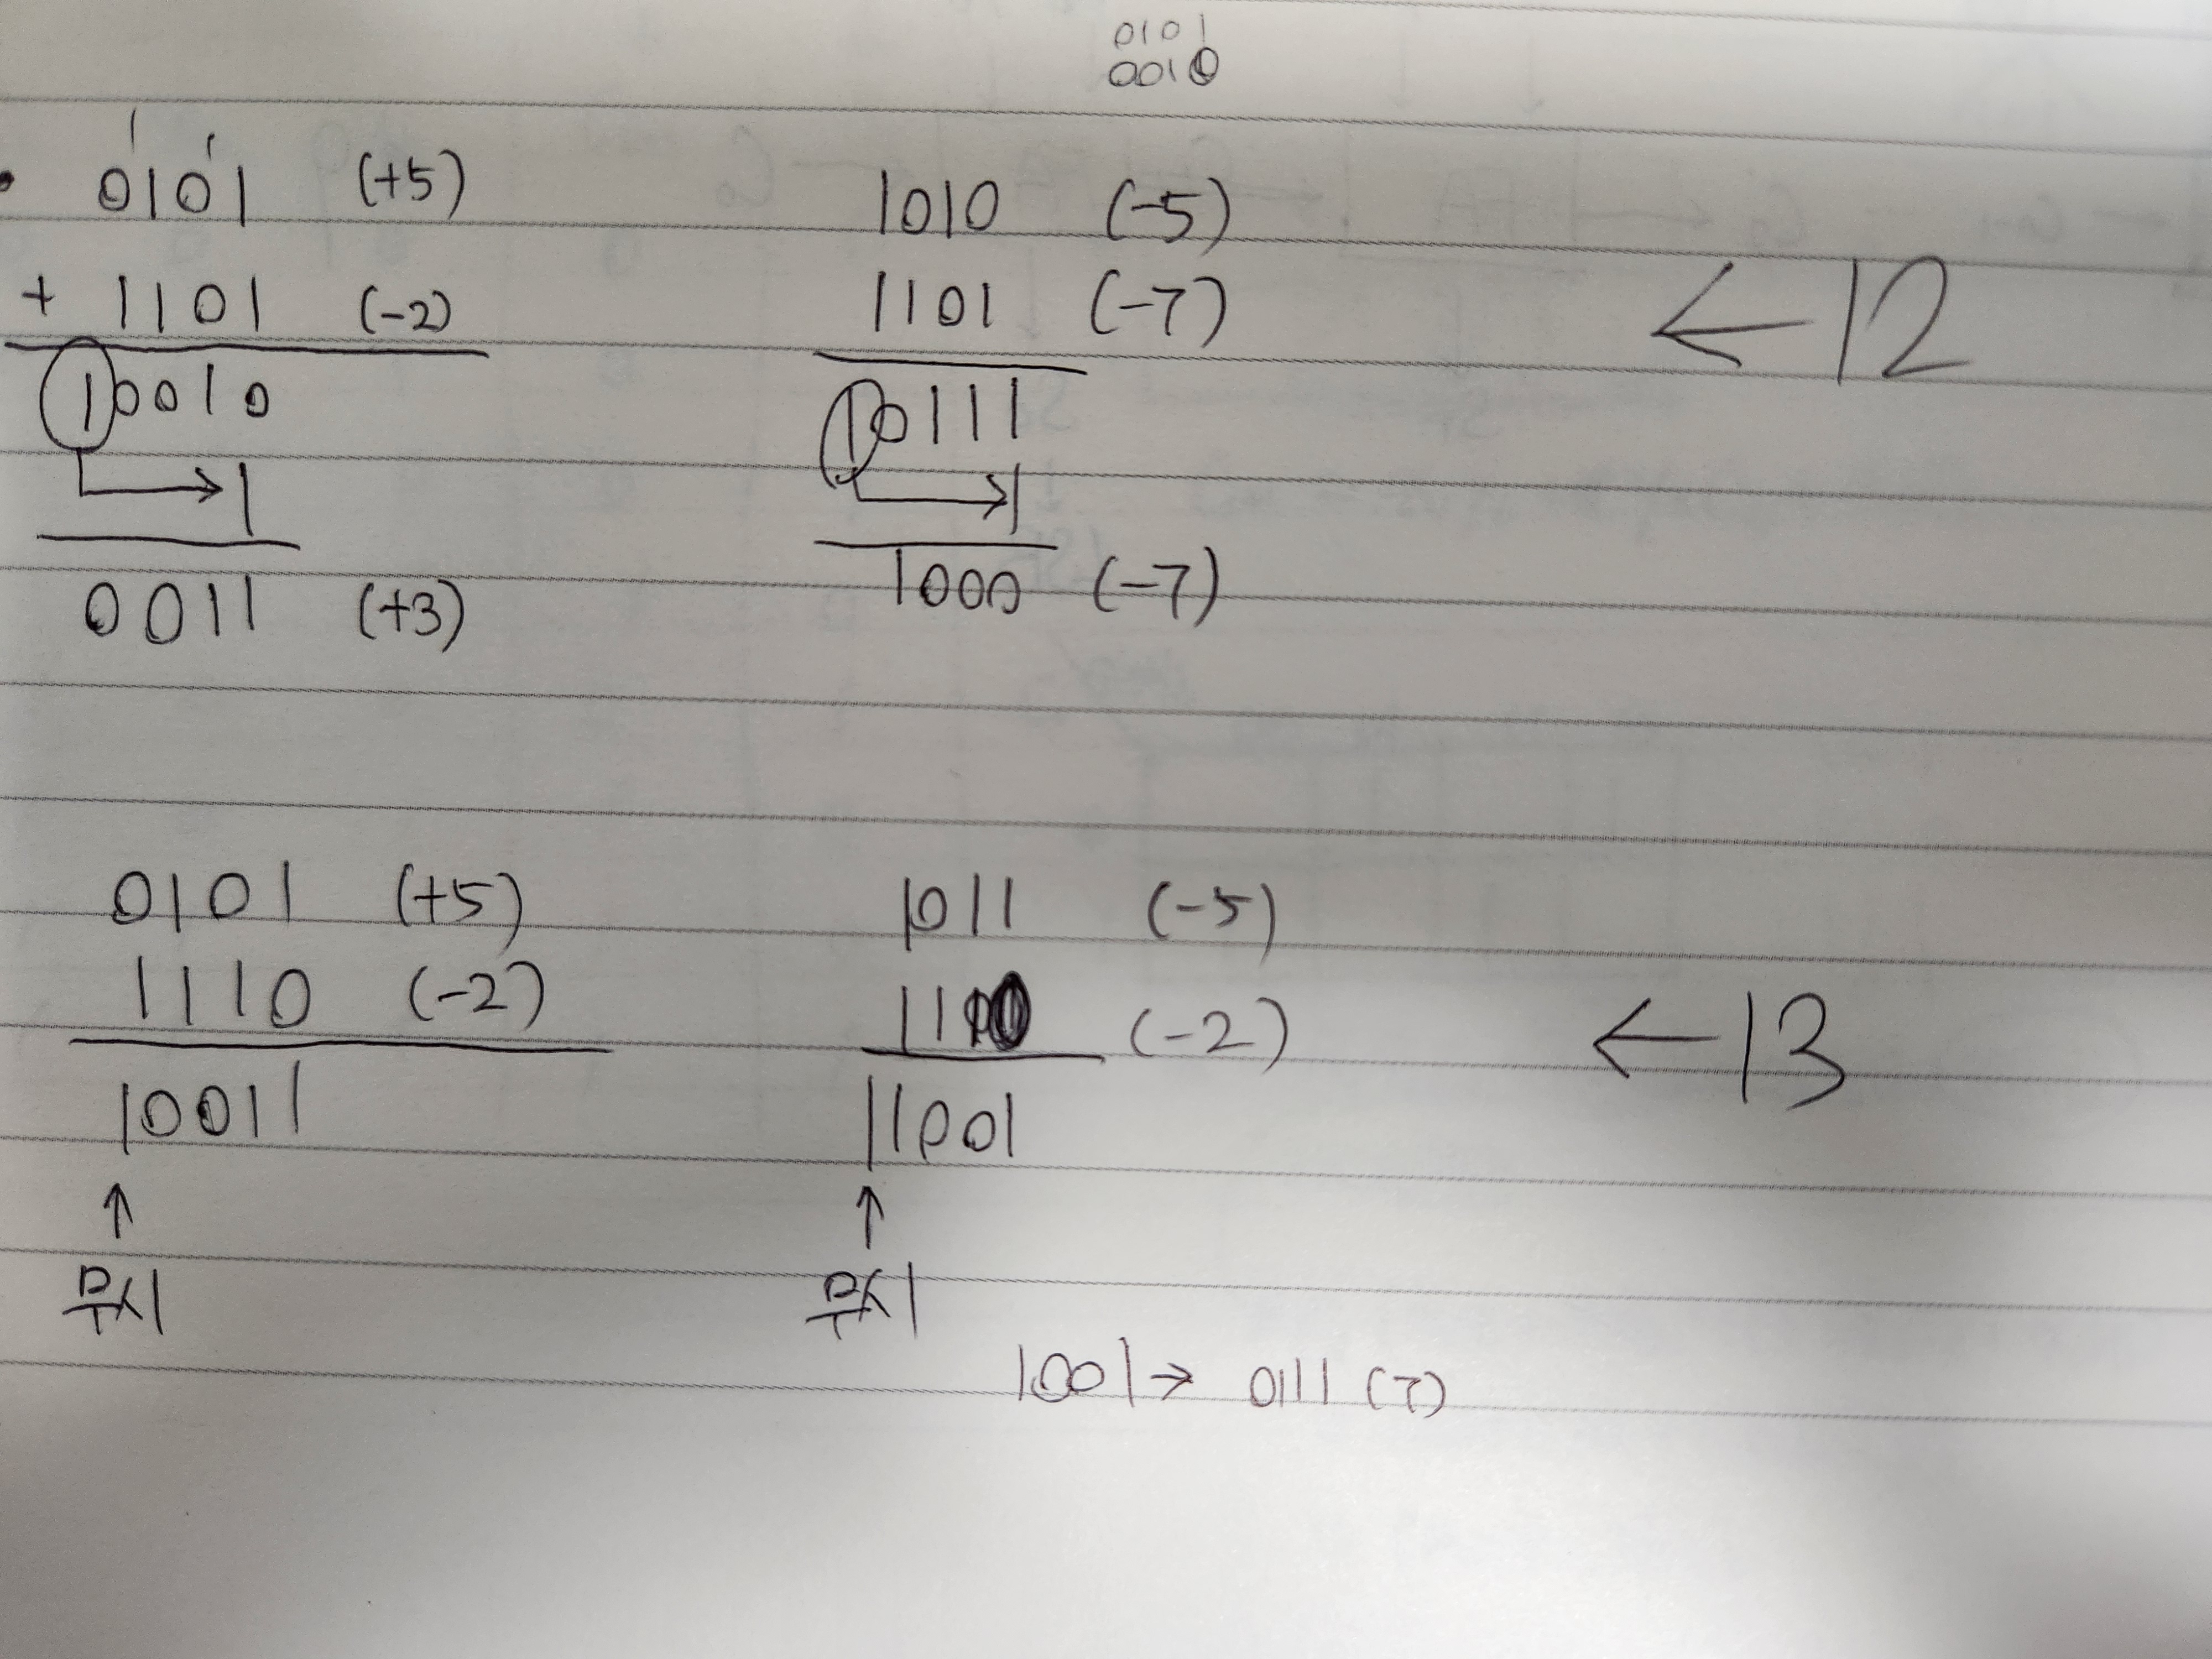 0101
0010
0101 (+5)
+ 1101 (-2)
10010
1
0011 (+3)
1010 (-5)
1101 (-7)
10111
1
1000 (-7)
← 12
0101 (+5)
1110 (-2)
10011
↑
무시
1011 (-5)
1110 (-2)
11001
↑
무시
1001 → 0111 (7)
← 13